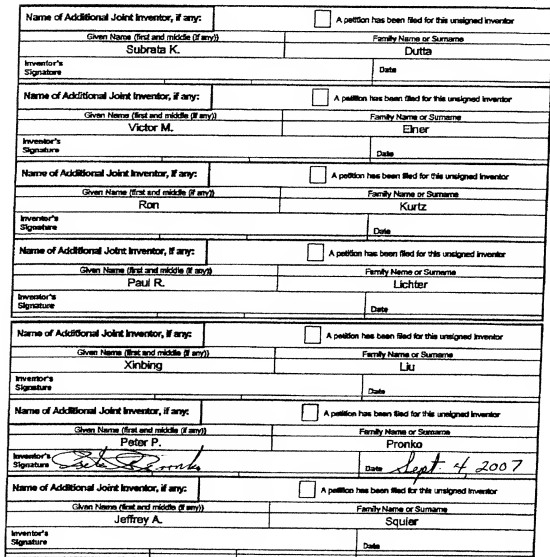 Name of Additional Joint Inventor, if any: A petition has been filed for this unsigned inventor
Given Name (first and middle (if any)) Family Name or Surname
Subrata K. Dutta
Inventor's Signature Date
Name of Additional Joint Inventor, if any: A petition has been filed for this unsigned inventor
Given Name (first and middle (if any)) Family Name or Surname
Victor M. Elner
Inventor's Signature Date
Name of Additional Joint Inventor, if any: A petition has been filed for this unsigned inventor
Given Name (first and middle (if any)) Family Name or Surname
Ron Kurtz
Inventor's Signature Date
Name of Additional Joint Inventor, if any: A petition has been filed for this unsigned inventor
Given Name (first and middle (if any)) Family Name or Surname
Paul R. Lichter
Inventor's Signature Date
Name of Additional Joint Inventor, if any: A petition has been filed for this unsigned inventor
Given Name (first and middle (if any)) Family Name or Surname
Xinbing Liu
Inventor's Signature Date
Name of Additional Joint Inventor, if any: A petition has been filed for this unsigned inventor
Given Name (first and middle (if any)) Family Name or Surname
Peter P. Pronko
Inventor's Signature Peter P Pronko Date Sept 4, 2007
Name of Additional Joint Inventor, if any: A petition has been filed for this unsigned inventor
Given Name (first and middle (if any)) Family Name or Surname
Jeffrey A. Squier
Inventor's Signature Date